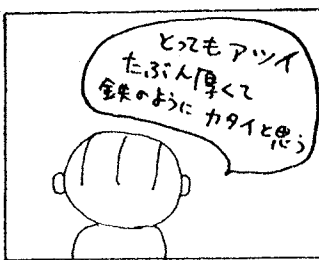 とってもアツイ
たぶん厚くて
鉄のように カタイと思う